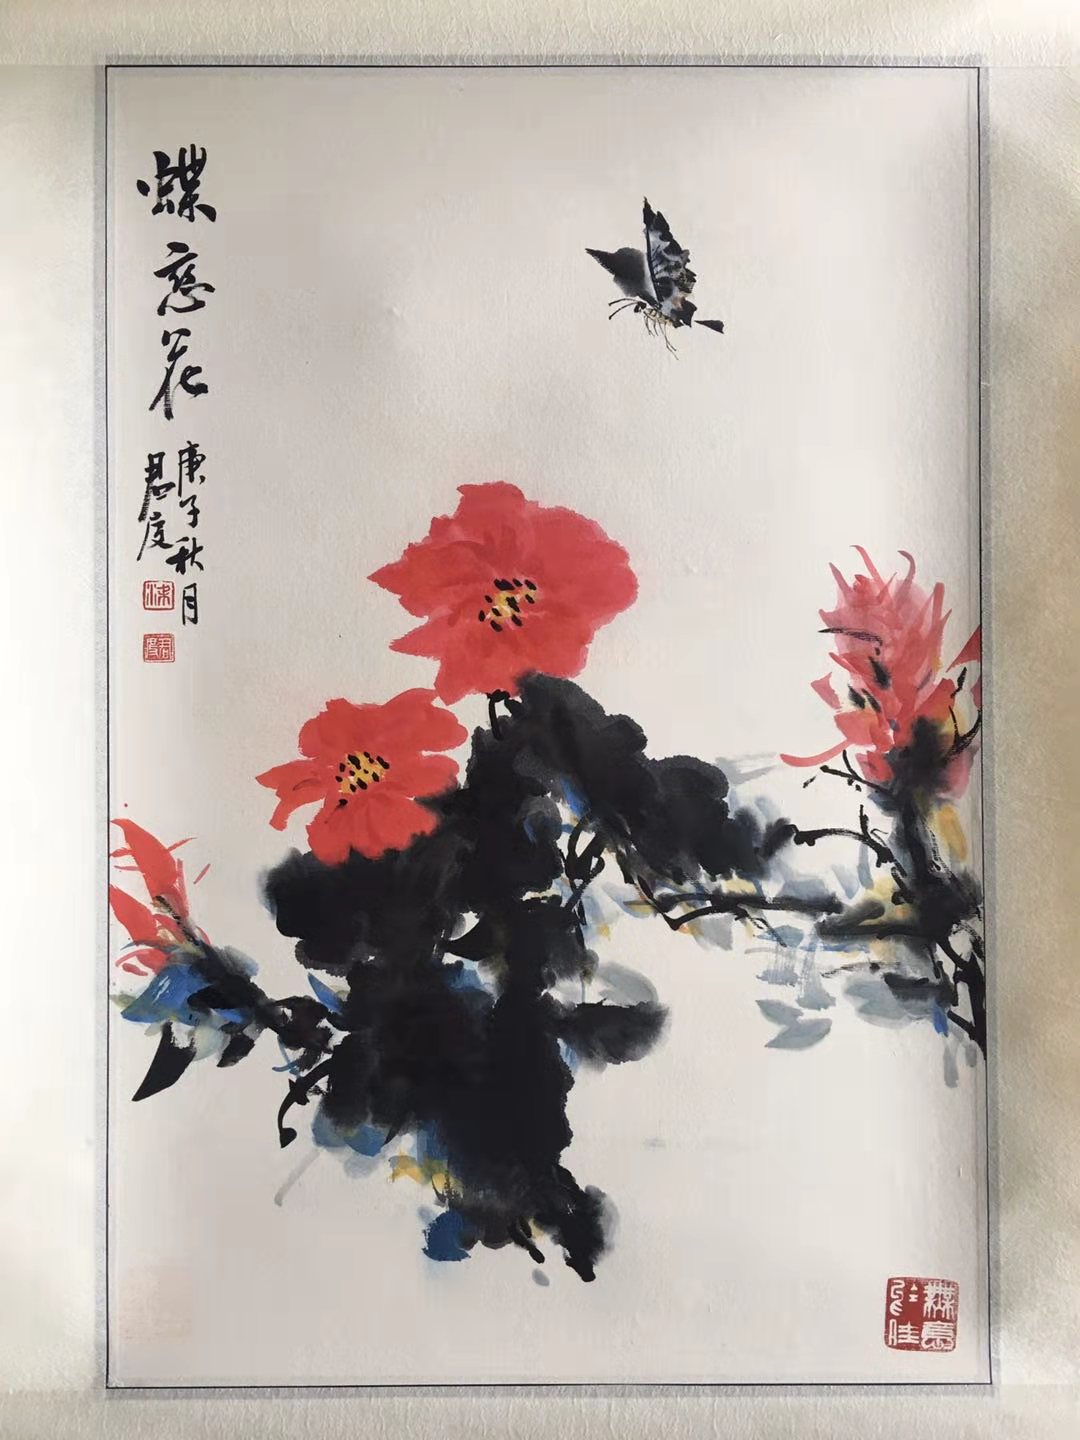 蝶恋花
庚子秋月
君度
君度